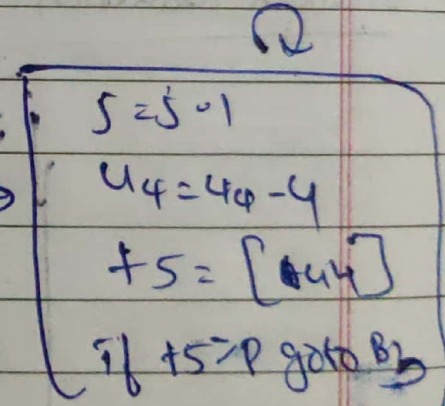 j = j - 1
u4 = u4 - 4
t5 = [u4]
if t5 > p goto B3